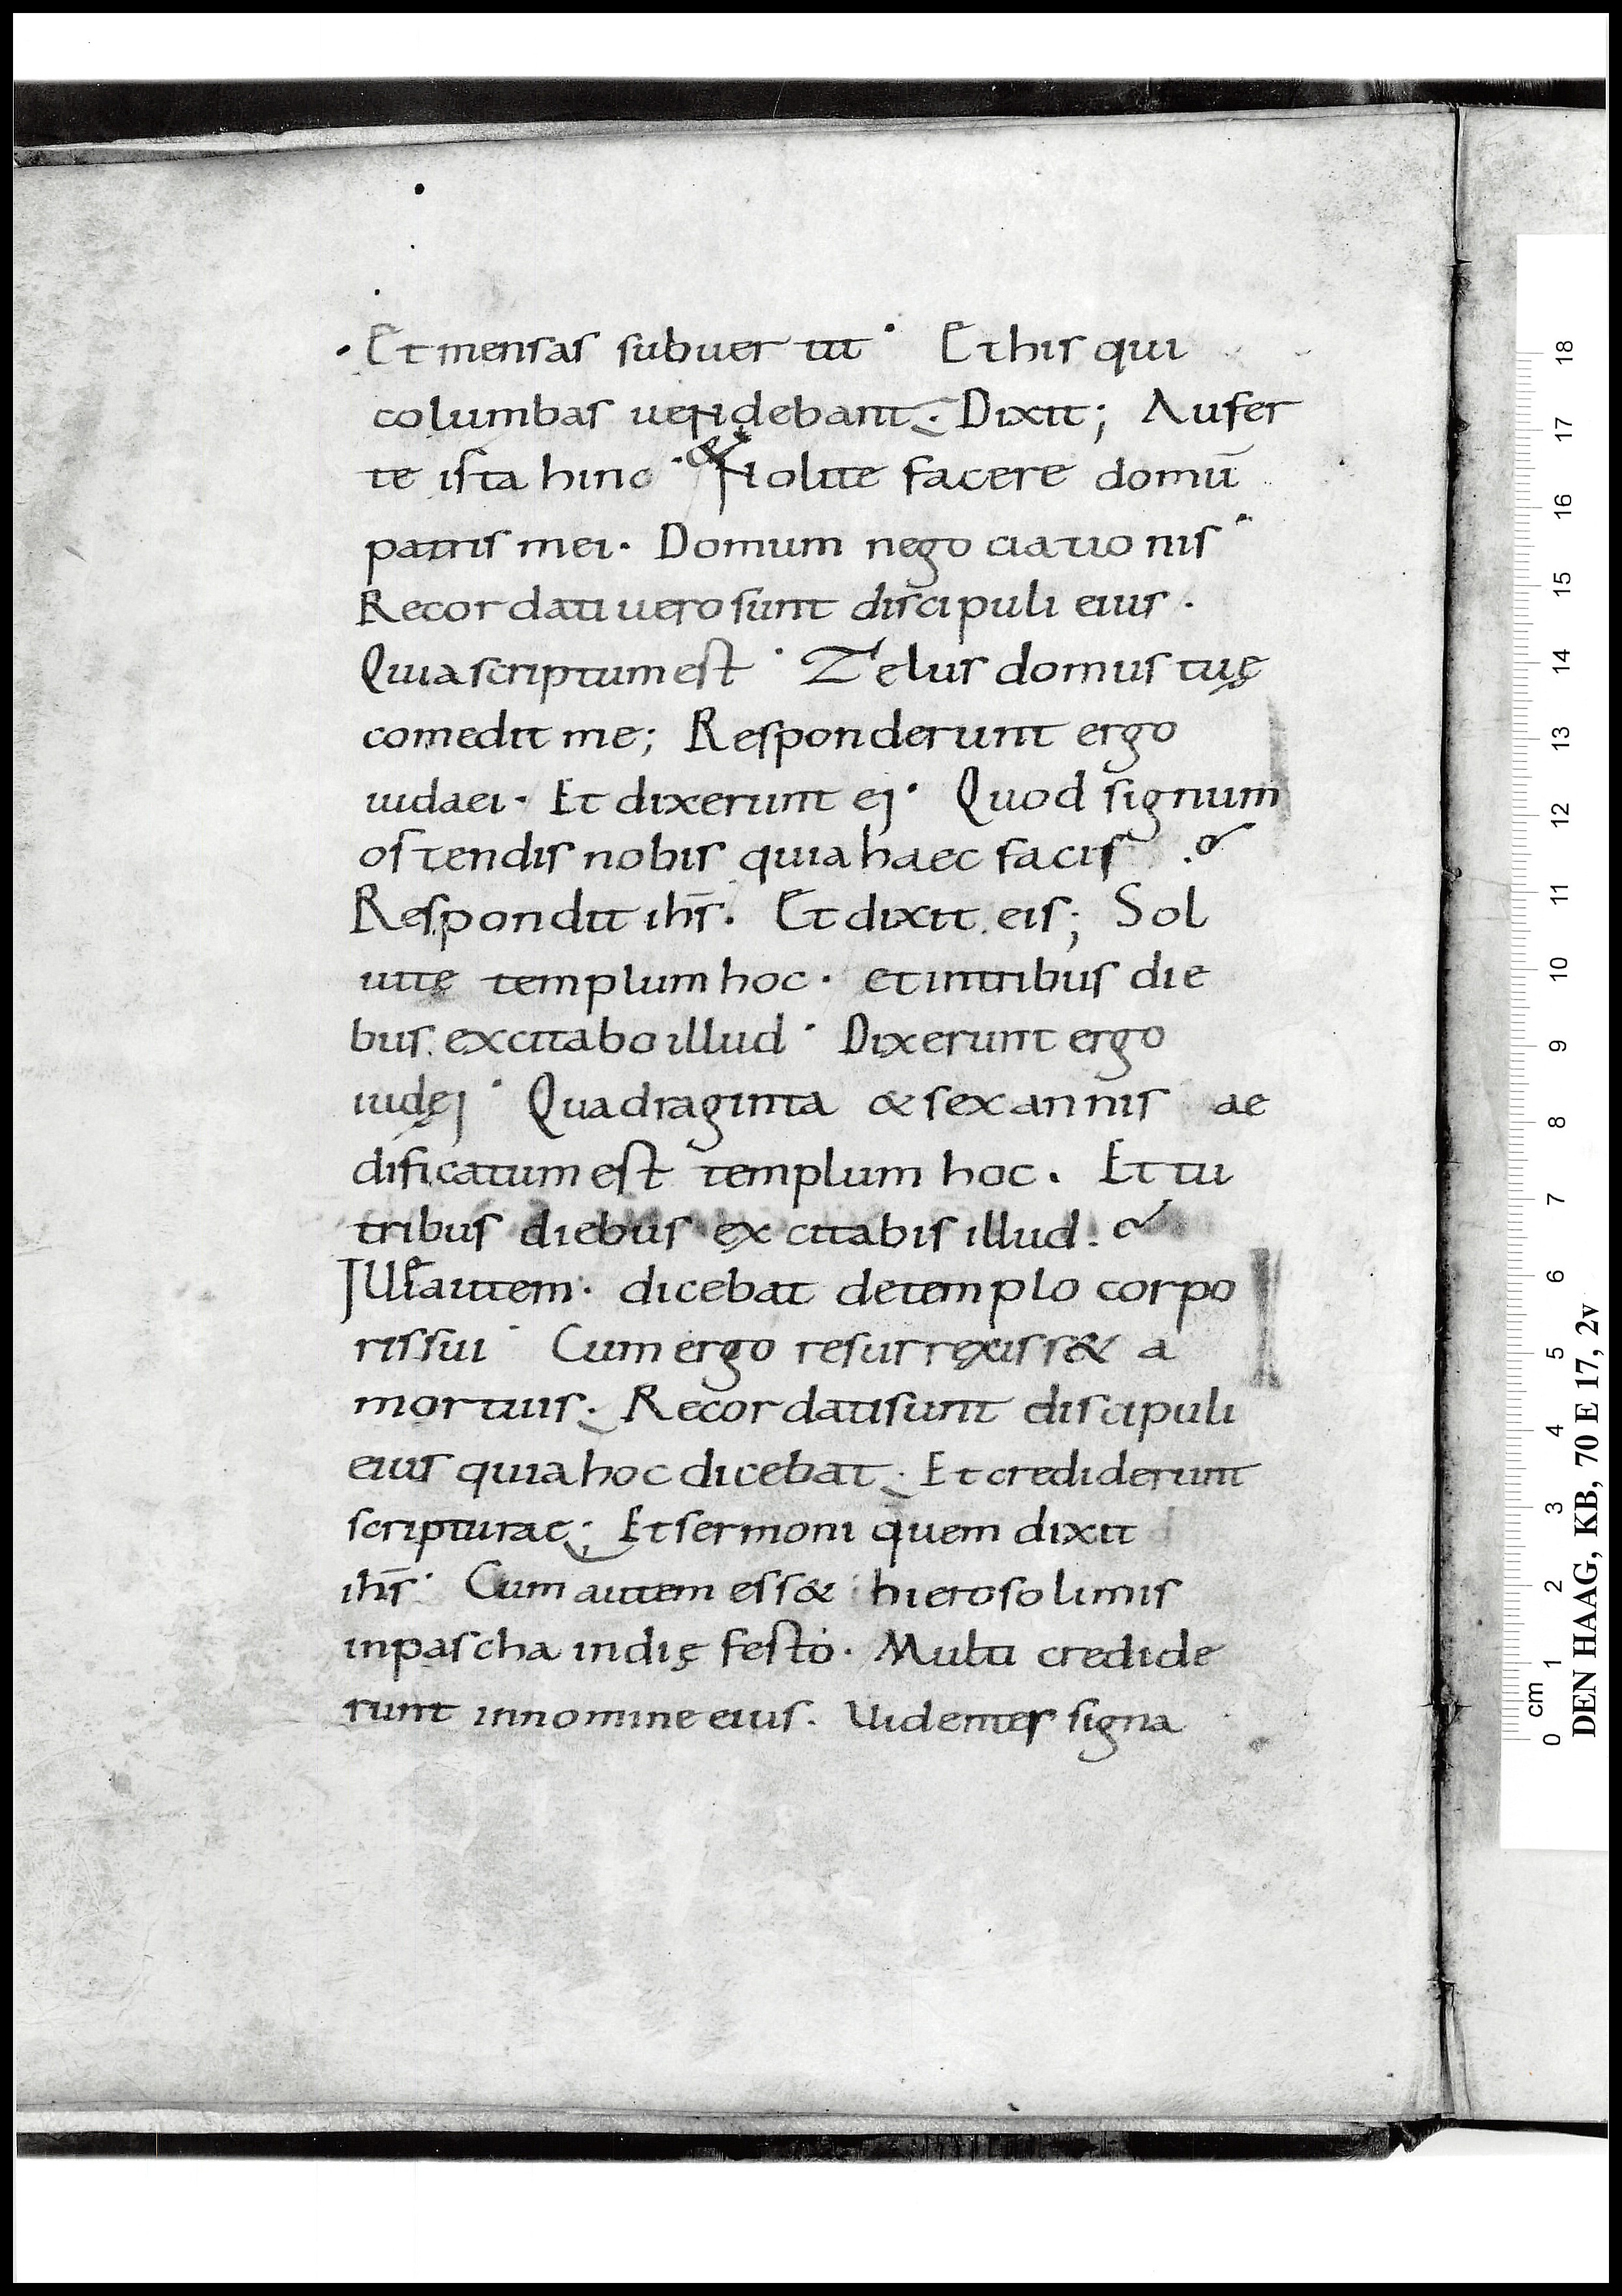 Et mensas subuertit. Et his qui
columbas uendebant. Dixit; Aufer
te ista hinc. & Nolite facere domū
patris mei. Domum negociationis.
Recordati uero sunt discipuli eius.
Quia scriptum est. Zelus domus tuę
comedit me; Responderunt ergo
iudaei. Et dixerunt ej. Quod signum
ostendis nobis quia haec facis
Respondit ihs̄. Et dixit eis; Sol
uitę templum hoc. et in tribus die
bus excitabo illud. Dixerunt ergo
iudęj. Quadraginta & sex annis ae
dificatum est templum hoc. Et tu
tribus diebus excitabis illud.
Ille autem. dicebat de templo corpo
ris sui. Cum ergo resurrexiss& a
mortuis. Recordati sunt discipuli
eius quia hoc dicebat. Et crediderunt
scripturae; Et sermoni quem dixit
ihs̄. Cum autem ess& hierosolimis
in pascha in dię festo. Multi credide
runt in nomine eius. Uidentes signa
0 cm 1 2 3 4 5 6 7 8 9 10 11 12 13 14 15 16 17 18
DEN HAAG, KB, 70 E 17, 2v